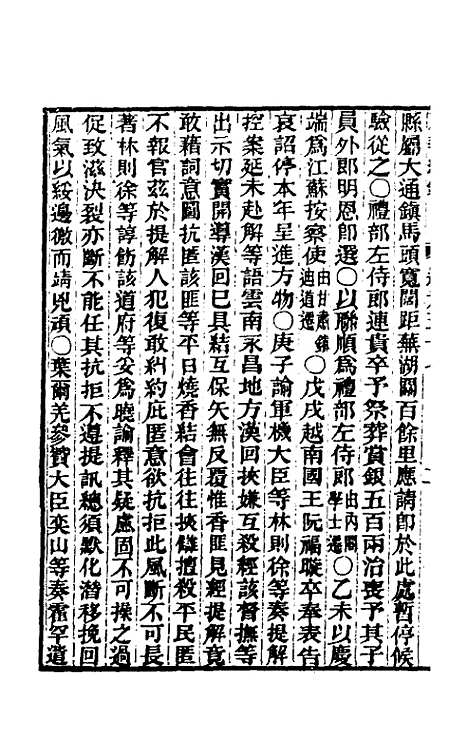 縣屬大通鎮馬頭寬闊距蕪湖關百餘里應請卽於此處暫停候
驗從之○禮部左侍郎連貴卒予祭葬賞銀五百兩治喪予其子
員外郎明恩卽選○以聯順爲禮部左侍郎由內閣學士遷○乙未以慶
端爲江蘇按察使由甘肅鎮迪道遷○戊戌越南國王阮福暶卒奉表告
哀詔停本年呈進方物○庚子諭軍機大臣等林則徐等奏提解
控案延未赴解等語雲南永昌地方漢回挾嫌互殺經該督撫等
出示切實開導漢回已具結互保矢無反覆惟香匪見經提解竟
敢藉詞意圖抗匿該匪等平日燒香結會往往挾讎擅殺平民匿
不報官茲於提解人犯復敢糾約庇匿意欲抗拒此風斷不可長
著林則徐等諄飭該道府等妥爲曉諭釋其疑慮固不可操之過
促致滋決裂亦斷不能任其抗拒不遵提訊總須默化潛移挽回
風氣以綏邊徼而靖兇頑○葉爾羌參贊大臣奕山等奏霍罕遣